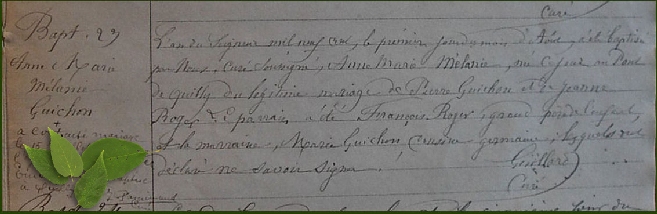 Curé
Bapt. 23
Anne Marie
Mélanie
Guichon
a contracté mariage
L'an du Seigneur mil neuf cent, le premier jour du mois d'Août, a été baptisée
par Nous, Curé soussigné, Anne Marie Mélanie, née ce jour au Pont
de Quilly du légitime mariage de Pierre Guichon et de Jeanne
Roger. Le parrain a été François Roger, grand père de l'enfant,
et la marraine, Marie Guichon, cousine germaine, lesquels ont
déclaré ne savoir signer.
Curé
Bapt. 24